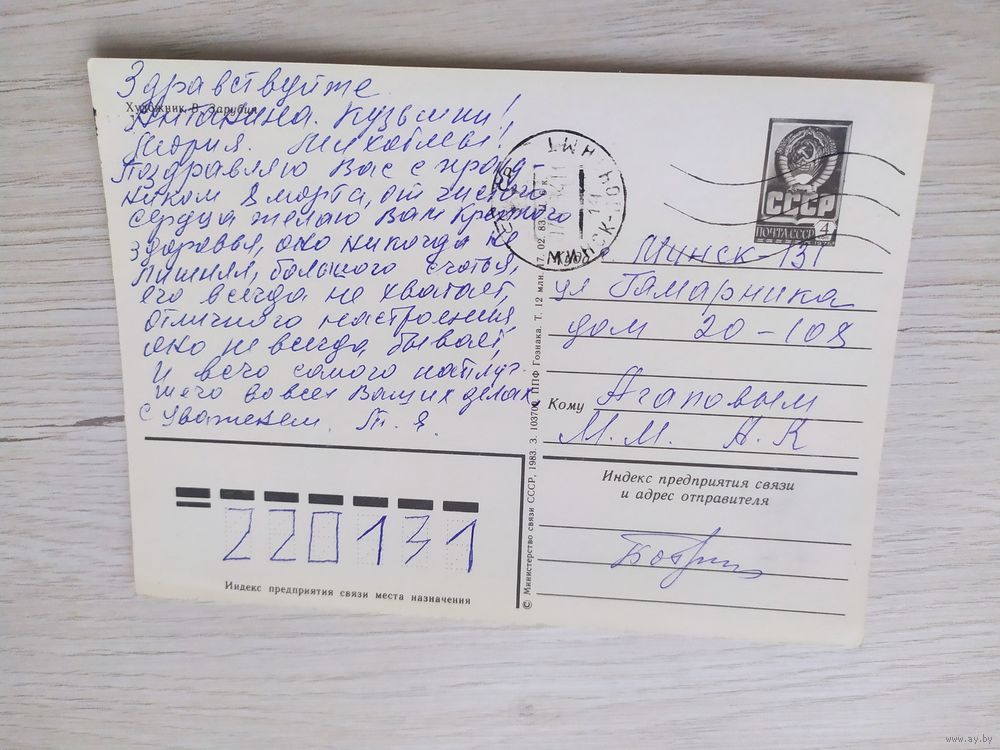 Здравствуйте
Художник В. Зарубин
Антанина. Кузьмин!
Мория. Михотлвы!
Поздравляю Вас с празд-
ником 8 морта, от чистого
сердца желаю Вам Крепкого
здоровья, оно никогда не
лишняя, большого счастья,
его всегда не хватает,
отличного настроения,
оно не всегда бывает,
И всего самого наилуч-
шего во всех Ваших делах,
с уважением. Т. Я.
220131
Индекс предприятия связи места назначения
© Министерство связи СССР, 1983. З. 103700. ППФ Гознака. Т. 12 млн. 17. 02. 83.
МИНСК
ПОЧТАМТ
СССР
ПОЧТА СССР
4
1976
Минск-131
ул Гамарника
дом 20-108
Кому Агаповым
М.М. А.К
Индекс предприятия связи
и адрес отправителя
www.ay.by